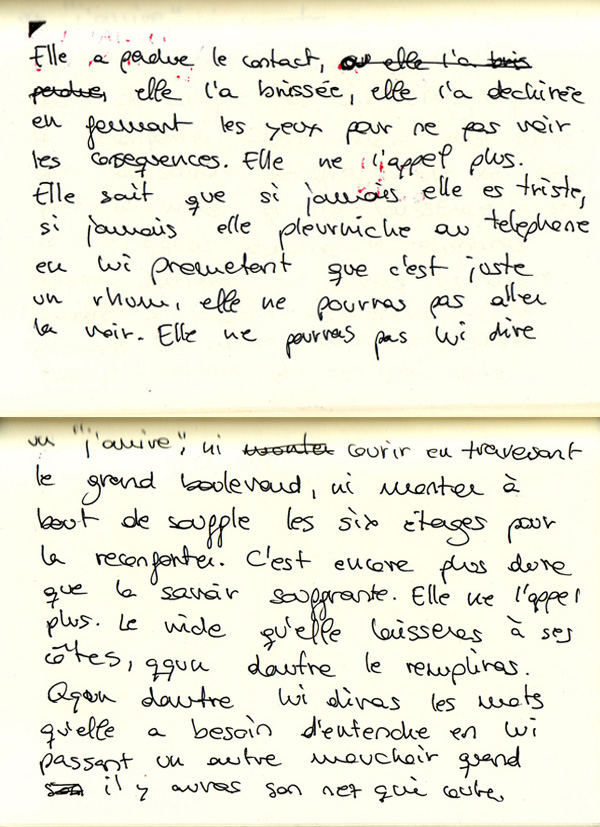 Elle a perdue le contact, ou elle l'a bris
perdue, elle l'a brissée, elle l'a dechirée
en fermant les yeux pour ne pas voir
les consequences. Elle ne l'appel plus.
Elle sait que si jamais elle es triste,
si jamais elle pleurniche au telephone
en lui prometent que c'est juste
un rhum, elle ne pourras pas aller
la voir. Elle ne pourras pas lui dire
un "j'arrive", ni monter courir en traversant
le grand boulevard, ni monter à
bout de souffle les six étages pour
la reconforter. C'est encore plus dure
que la savoir souffrante. Elle ne l'appel
plus. Le vide qu'elle laisseras à ses
côtes, qqun dautre le rempliras.
Qqun dautre lui diras les mots
qu'elle a besoin d'entendre en lui
passant un autre mouchoir quand
son il y auras son nez qui coule,